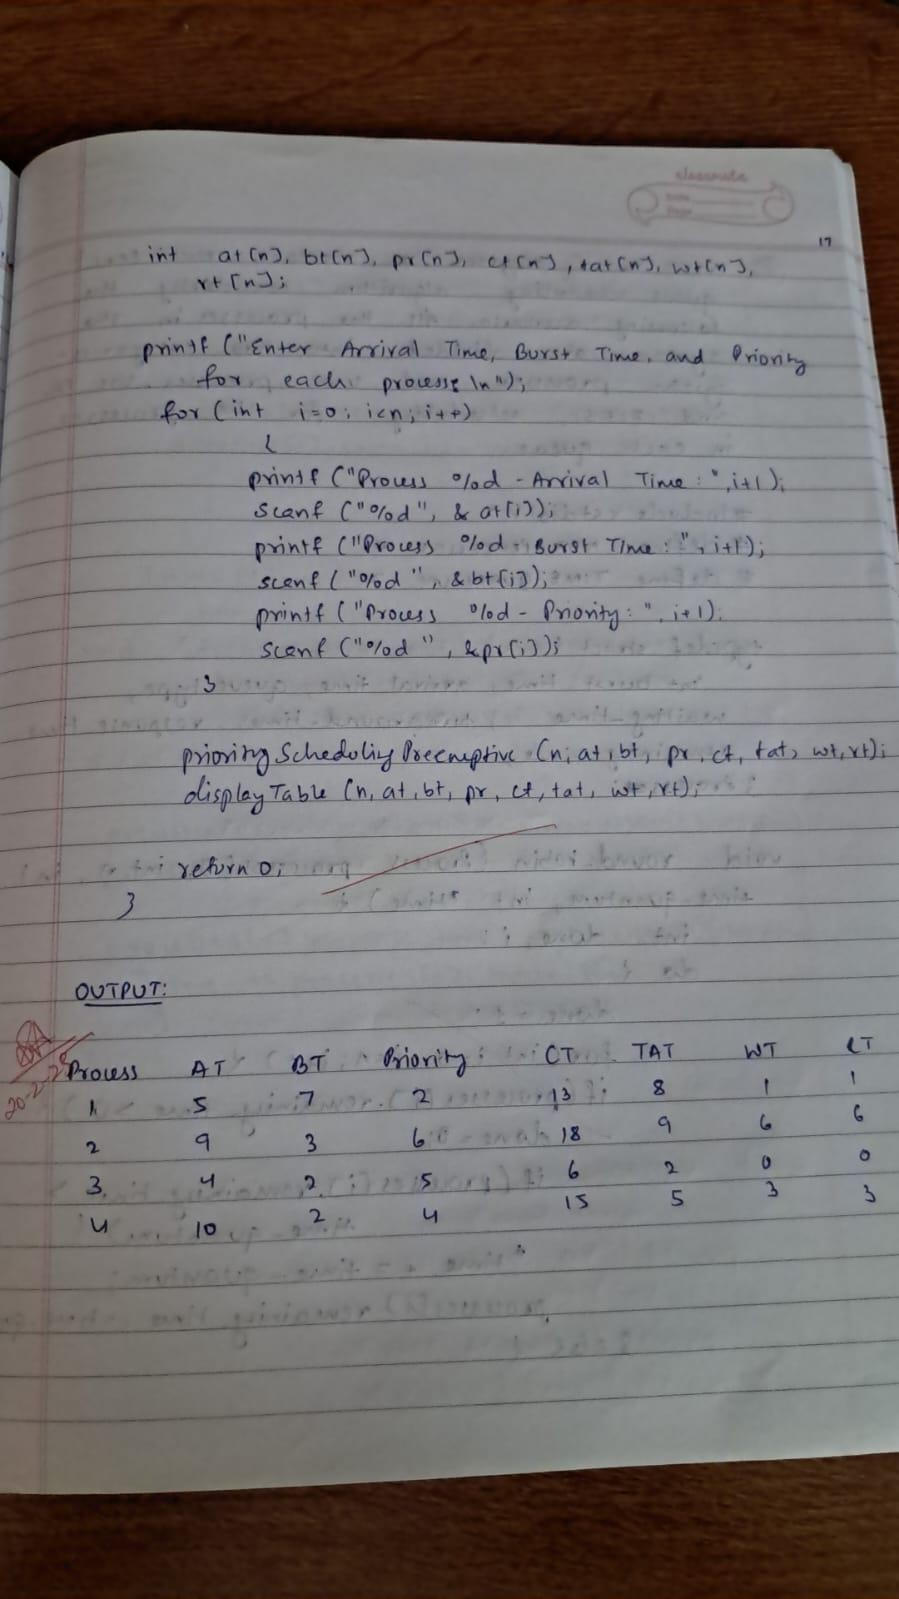 classmate
17
int at[n], bt[n], pr[n], ct[n], tat[n], wt[n],
rt[n];
printf ("Enter Arrival Time, Burst Time, and Priority
for each process \n");
for (int i=0; i<n; i++)
{
printf ("Process %d - Arrival Time : ", i+1);
scanf ("%d", & at[i]);
printf ("Process %d - Burst Time : ", i+1);
scanf ("%d", & bt[i]);
printf ("Process %d - Priority : ", i+1);
scanf ("%d", &pr[i]);
}
priority Scheduling Preemptive (n, at, bt, pr, ct, tat, wt, rt);
display Table (n, at, bt, pr, ct, tat, wt, rt);
return 0;
}
OUTPUT:
Process AT BT Priority CT TAT WT RT
1 5 7 2 13 8 1 1
2 9 3 6 18 9 6 6
3 4 2 5 6 2 0 0
4 10 2 4 15 5 3 3